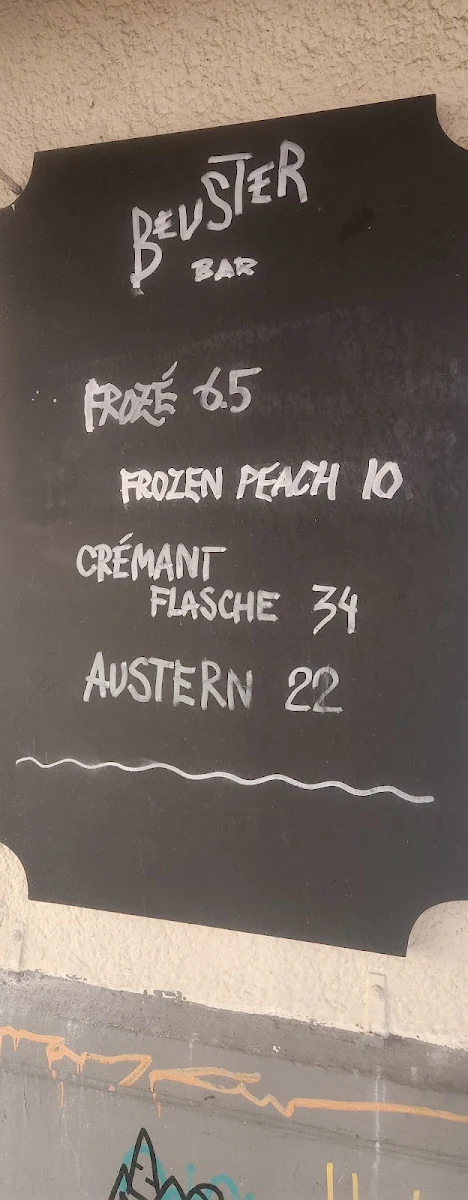 BEUSTER
BAR
FROZÉ 6.5
FROZEN PEACH 10
CRÉMANT
FLASCHE 34
AUSTERN 22